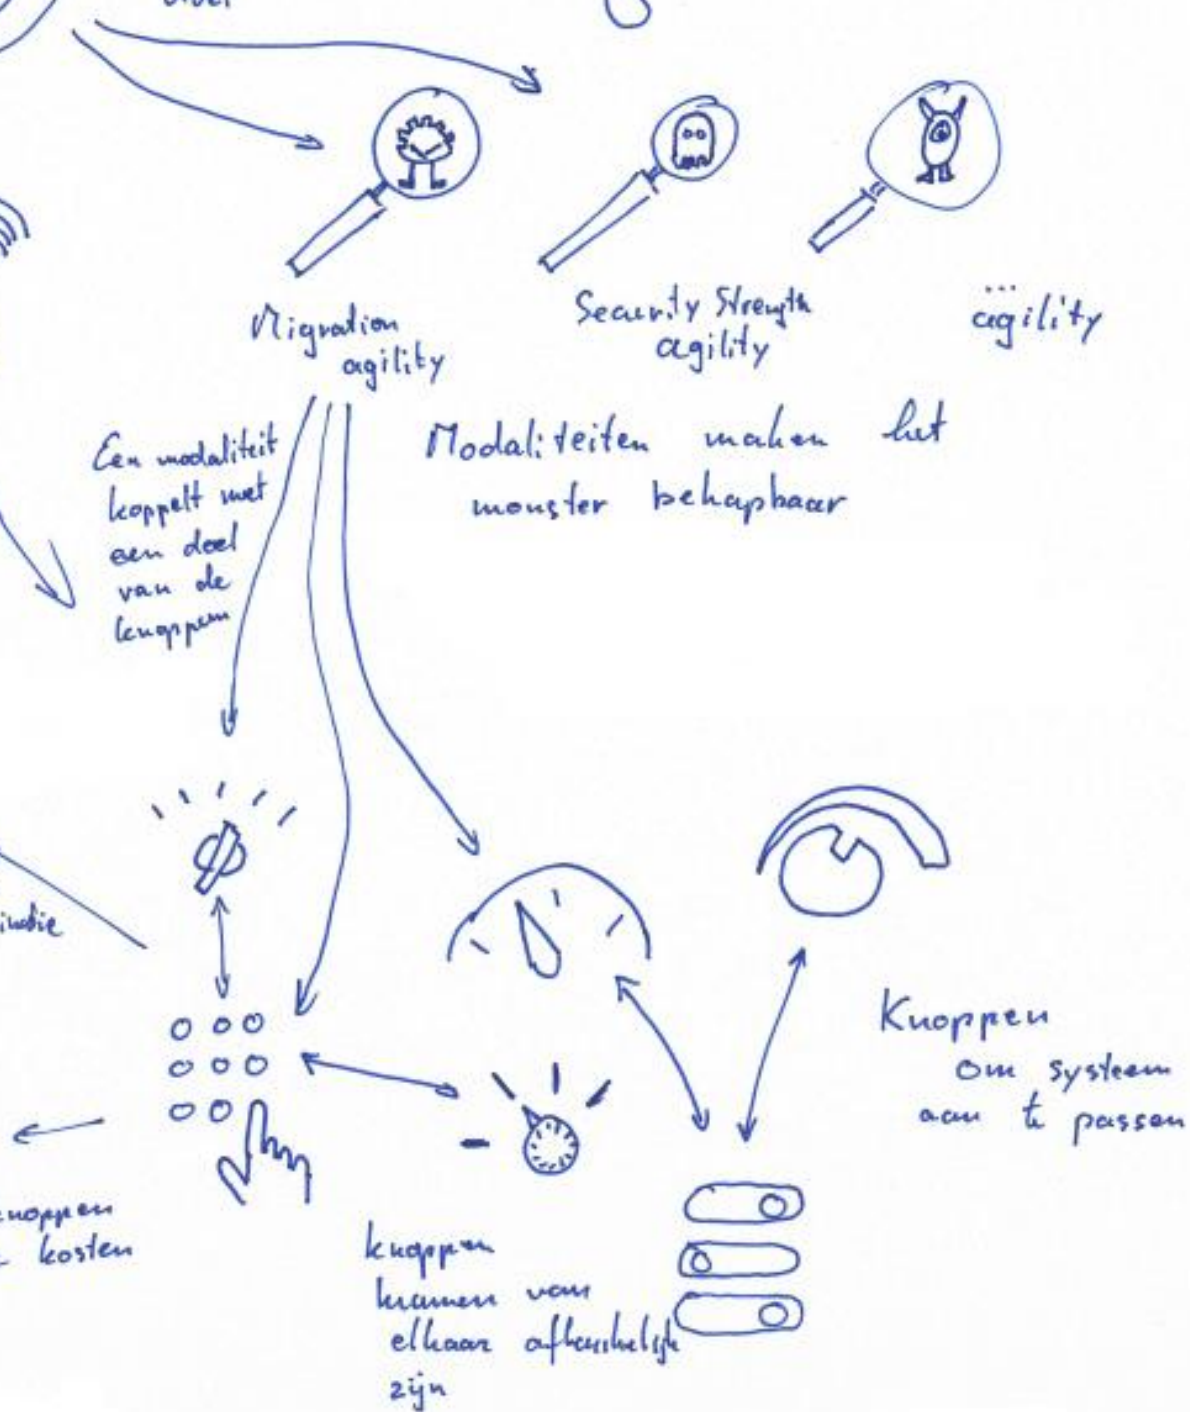 Migration
agility
Security Strength
agility
...
agility
Een modaliteit
koppelt met
een deel
van de
knoppen
Modaliteiten maken het
monster behapbaar
Knoppen
om systeem
aan te passen
knoppen
kosten
knoppen
kunnen van
elkaar afhankelijk
zijn